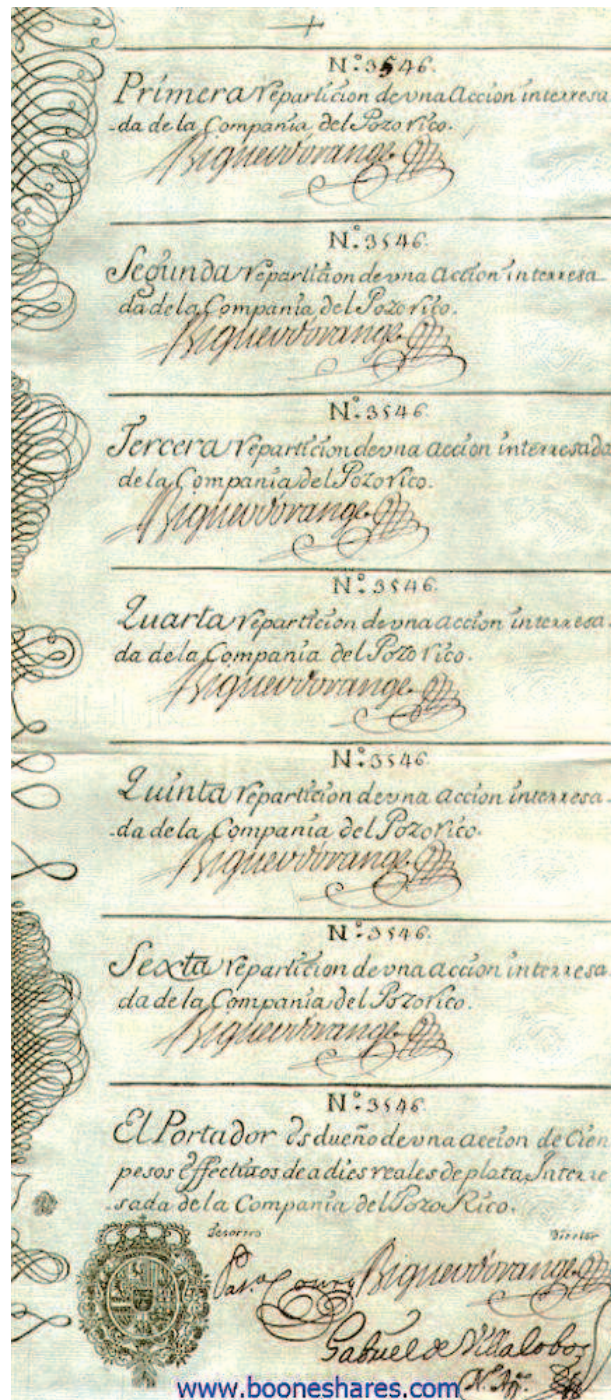 N.º 3546.
Primera repartición de vna Acción interresa
-da de la Compania del Pozo rico.
N.º 3546.
Segunda repartición de vna Acción interresa
da de la Compania del Pozo rico.
N.º 3546.
Tercera repartición de vna acción interresada
de la Compania del Pozo rico.
N.º 3546.
Quarta repartición de vna acción interresa.
da de la Compania del Pozo rico.
N.º 3546.
Quinta repartición de vna acción interresa.
-da de la Compania del Pozo rico.
N.º 3546.
Sexta repartición de vna acción interresa
da de la Compania del Pozo rico.
N.º 3546.
El Portador es dueño de vna acción de Cien
pesos effectivos de a dies reales de plata Interre
-sada de la Compania del Pozo Rico.
Tesorero Director
Gabriel de Villalobos
www.booneshares.com